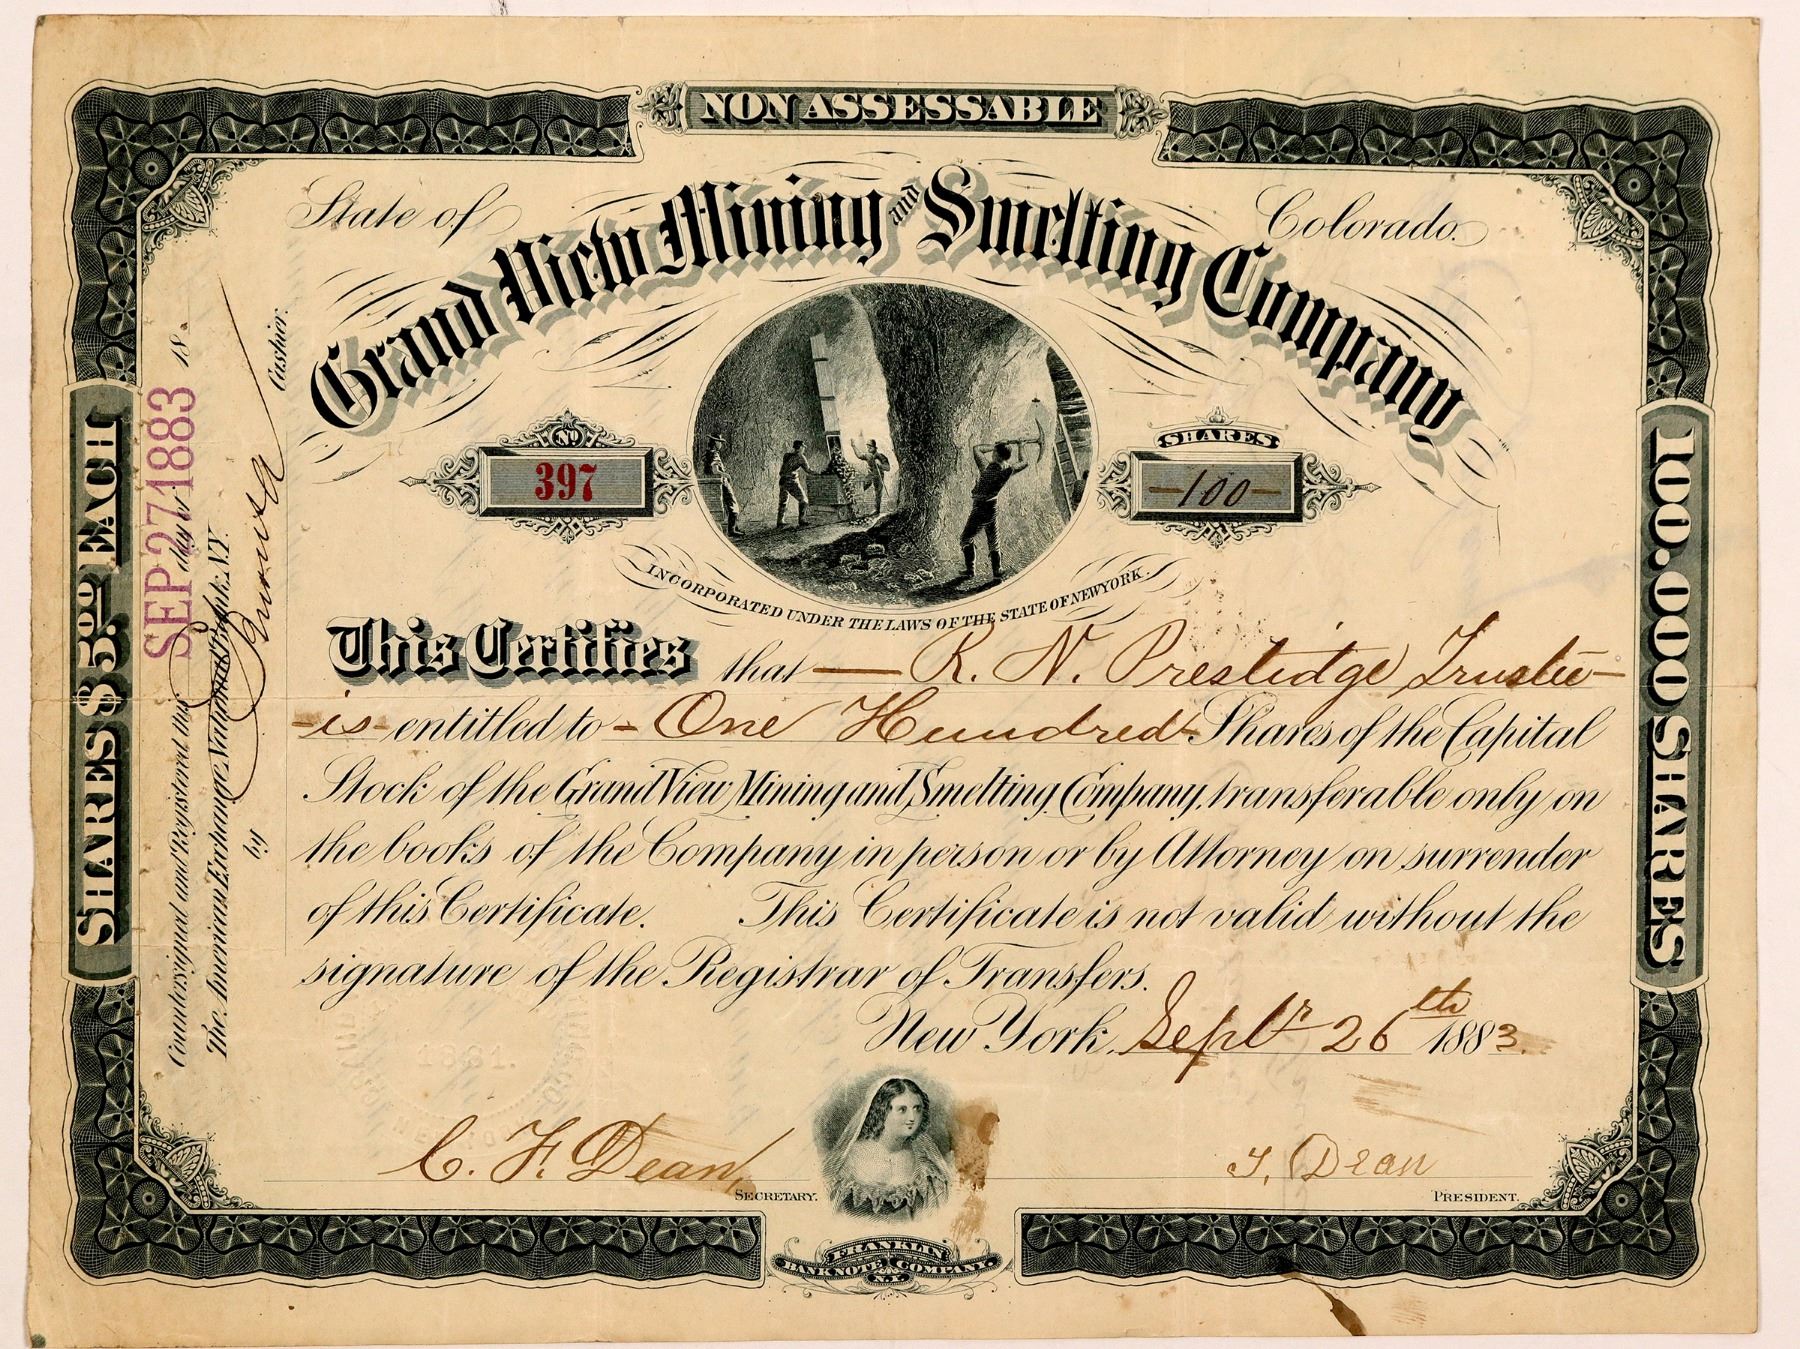 NON ASSESSABLE
State of Colorado.
Grand View Mining and Smelting Company
No 397
SHARES
-100-
INCORPORATED UNDER THE LAWS OF THE STATE OF NEW YORK.
This Certifies that — R. N. Prestidge Trustee —
-is- entitled to - One Hundred - Shares of the Capital
Stock of the Grand View Mining and Smelting Company, transferable only on
the books of the Company in person or by Attorney on surrender
of this Certificate. This Certificate is not valid without the
signature of the Registrar of Transfers.
New York, Septr 26th 1883.
C. F. Dean,
SECRETARY.
T. Dean
PRESIDENT.
FRANKLIN
BANK NOTE COMPANY.
N.Y.
SHARES $5.00 EACH
Countersigned and Registered this day of 18
SEP 27 1883
The American Exchange National Bank, N.Y.
by Cashier.
100.000 SHARES
1881.